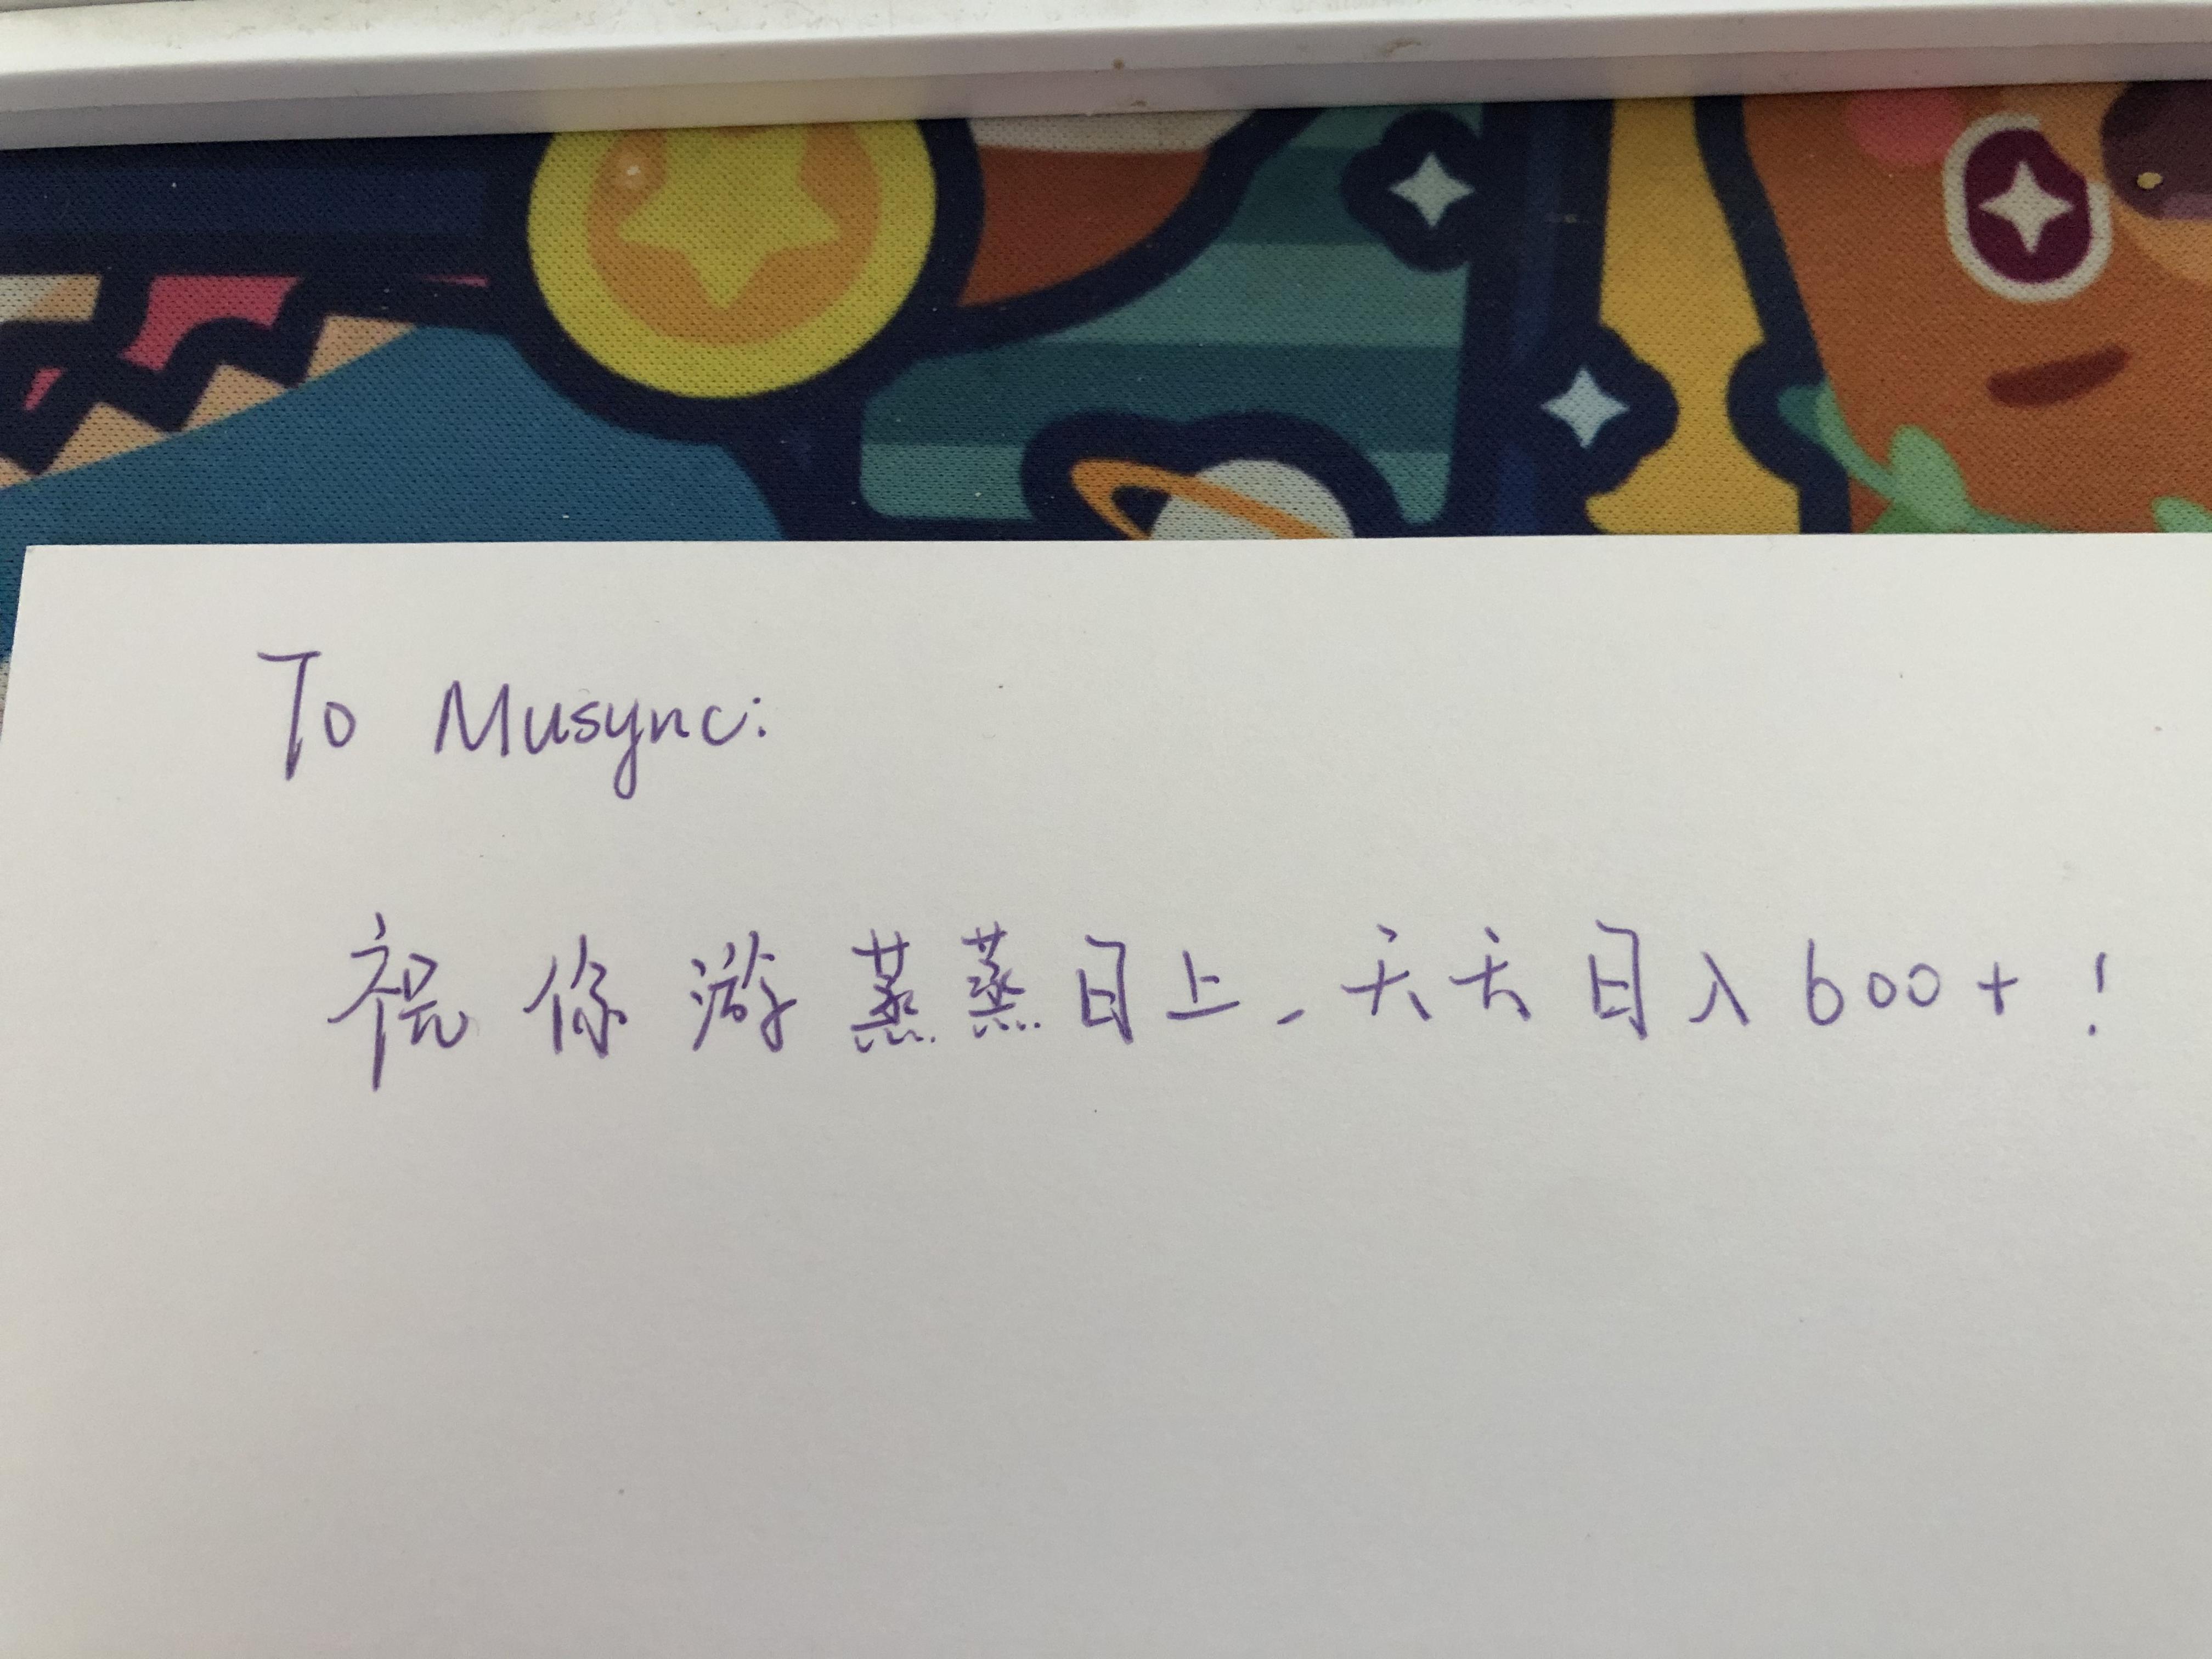 To Musync:
祝你游蒸蒸日上，天天日入600+！